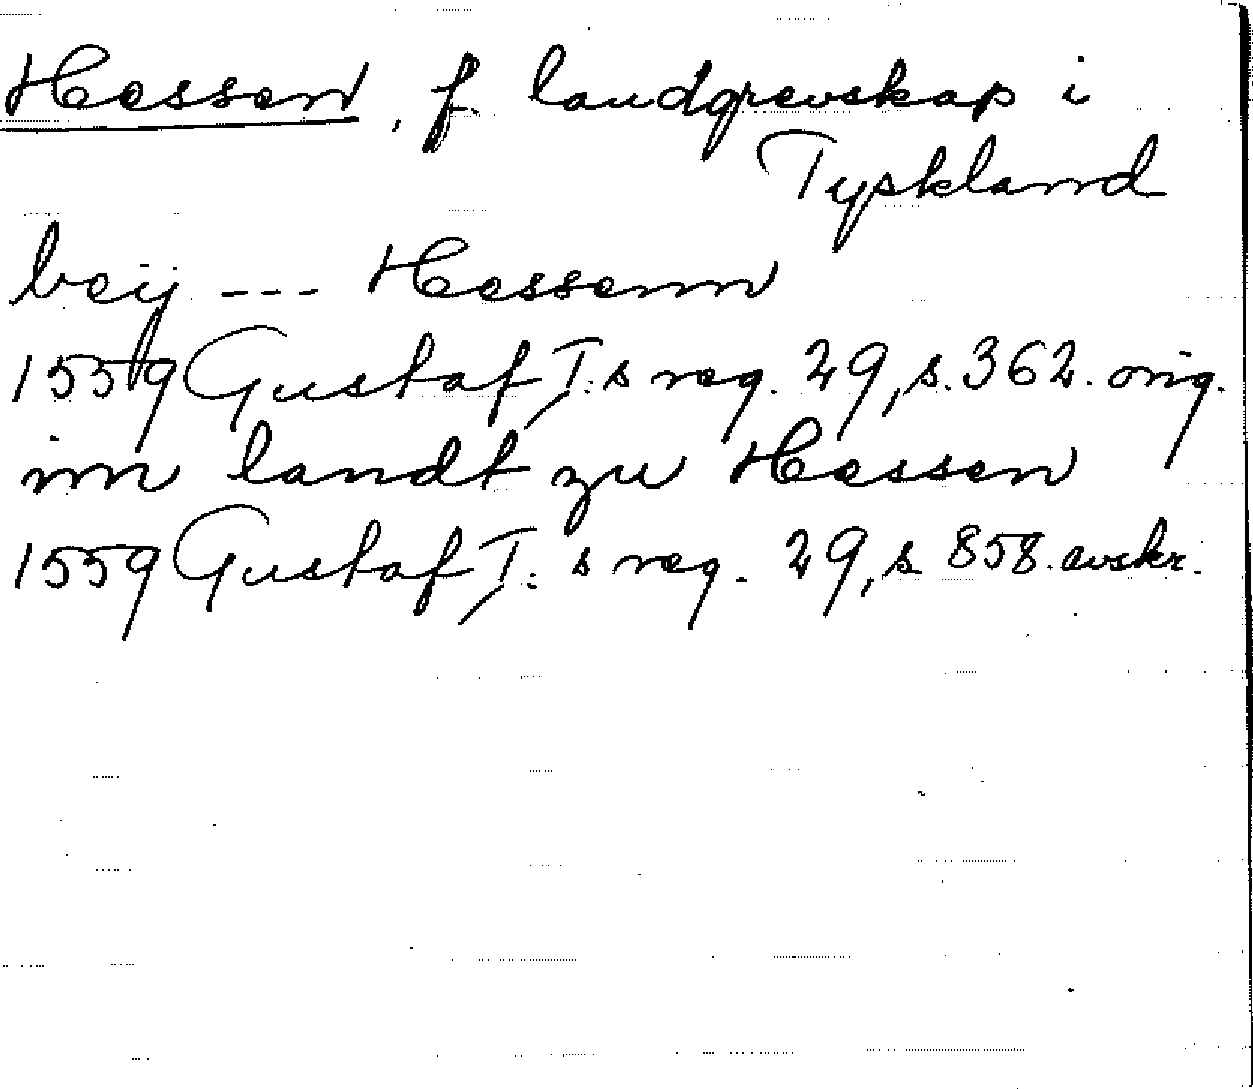 Hessen, f landgrevskap i
Tyskland
beÿ --- Hessenn
1559 Gustaf I:s reg. 29, s. 362. orig.
inn landt zu Hessen
1559 Gustaf I:s reg. 29, s. 858. avskr.